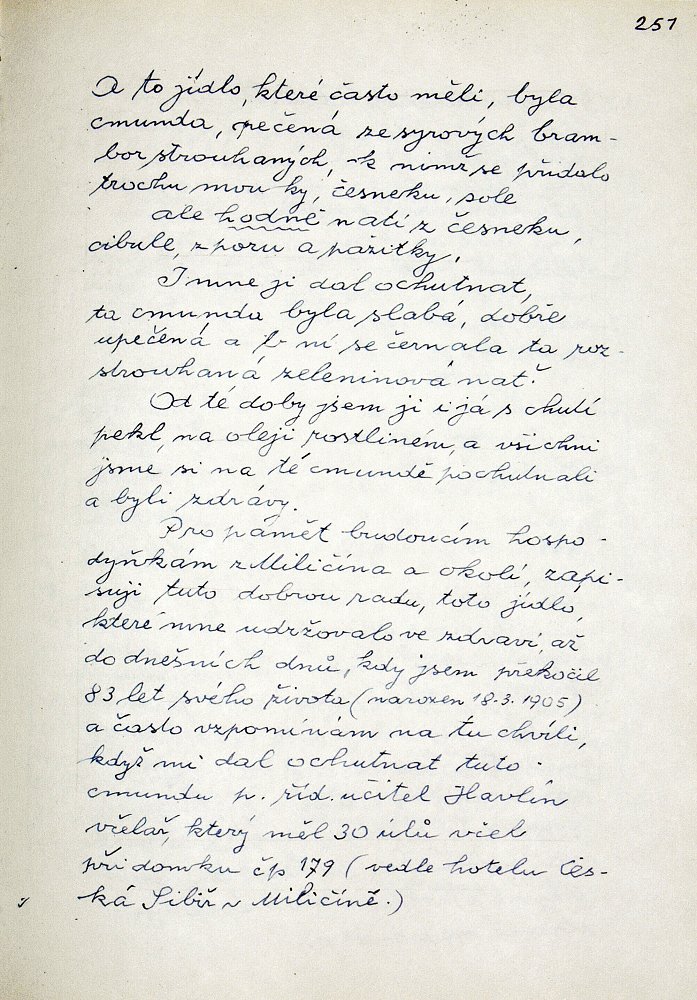 251
A to jídlo, které často měli, byla
cmunda, pečená ze syrových bram-
bor strouhaných, k nimž se přidalo
trochu mouky, česneku, sole
ale hodně natí z česneku,
cibule, z poru a pažitky.
I mne ji dal ochutnat,
ta cmunda byla slabá, dobře
upečená a v ní se černala ta roz-
strouhaná zeleninová nať.
Od té doby jsem ji i já s chutí
pekl, na oleji rostliném, a všichni
jsme si na té cmundě pochutnali
a byli zdrávy.
Pro pámět budoucím hospo-
dyňkám z Miličína a okolí, zapi-
suji tuto dobrou radu, toto jídlo,
které mne udržovalo ve zdraví, až
do dnešních dnů, kdy jsem překočil
83 let svého života (narozen 18.3.1905)
a často vzpomínám na tu chvíli,
když mi dal ochutnat tuto
cmundu p. říd. učitel Havlín
včelař, který měl 30 úlů včel
při domku čp 179 (vedle hotelu Čes-
ká Sibiř v Miličíně.)